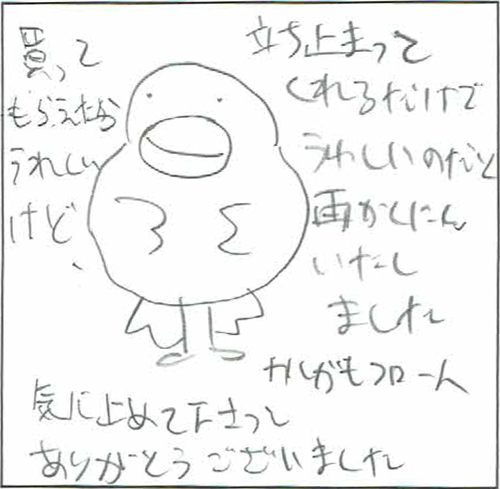 買って
もらえたら
うれしい
けど、
立ち止まって
くれるだけで
うれしいのだと
再かくにん
いたし
ました
気に止めて下さって
ありがとうございました